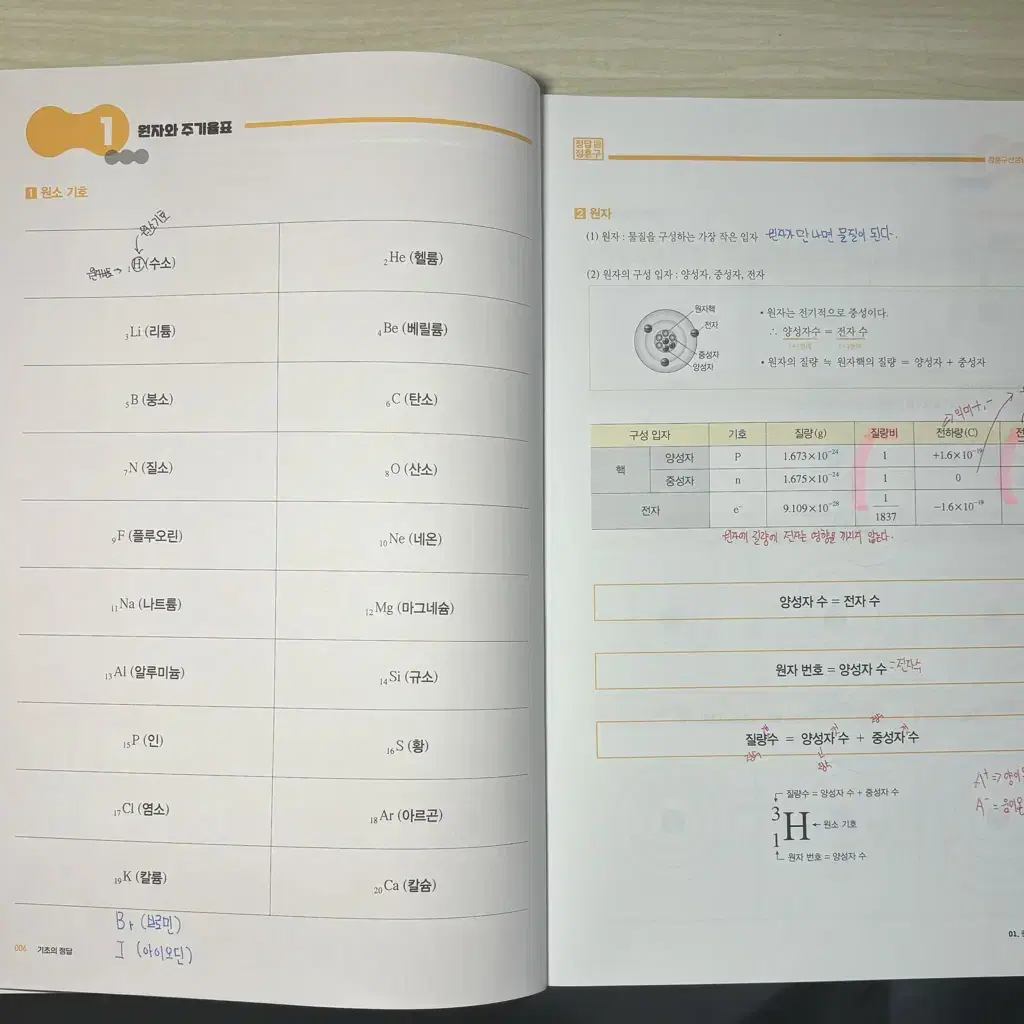 1 원자와 주기율표
1 원소 기호
원소기호
원자번호 → ₁H (수소)
₂He (헬륨)
₃Li (리튬)
₄Be (베릴륨)
₅B (붕소)
₆C (탄소)
₇N (질소)
₈O (산소)
₉F (플루오린)
₁₀Ne (네온)
₁₁Na (나트륨)
₁₂Mg (마그네슘)
₁₃Al (알루미늄)
₁₄Si (규소)
₁₅P (인)
₁₆S (황)
₁₇Cl (염소)
₁₈Ar (아르곤)
₁₉K (칼륨)
₂₀Ca (칼슘)
Br (브로민)
I (아이오딘)
006 기초의 정답
정답은
정훈구
2 원자
(1) 원자 : 물질을 구성하는 가장 작은 입자 원자가 만나면 물질이 된다.
(2) 원자의 구성 입자 : 양성자, 중성자, 전자
원자핵
전자
중성자
양성자
• 원자는 전기적으로 중성이다.
∴ 양성자수 = 전자 수
• 원자의 질량 ≒ 원자핵의 질량 = 양성자 + 중성자
구성 입자 기호 질량(g) 질량비 전하량(C)
핵 양성자 P 1.673×10⁻²⁴ 1 +1.6×10⁻¹⁹
중성자 n 1.675×10⁻²⁴ 1 0
전자 e⁻ 9.109×10⁻²⁸ 1/1837 −1.6×10⁻¹⁹
원자의 질량에 전자는 영향을 끼치지 않는다.
양성자 수 = 전자 수
원자 번호 = 양성자 수 = 전자수
질량수 = 양성자 수 + 중성자 수
질량수 = 양성자 수 + 중성자 수
3
1
H ← 원소 기호
원자 번호 = 양성자 수
A⁺ ⇒
A⁻ =
01.